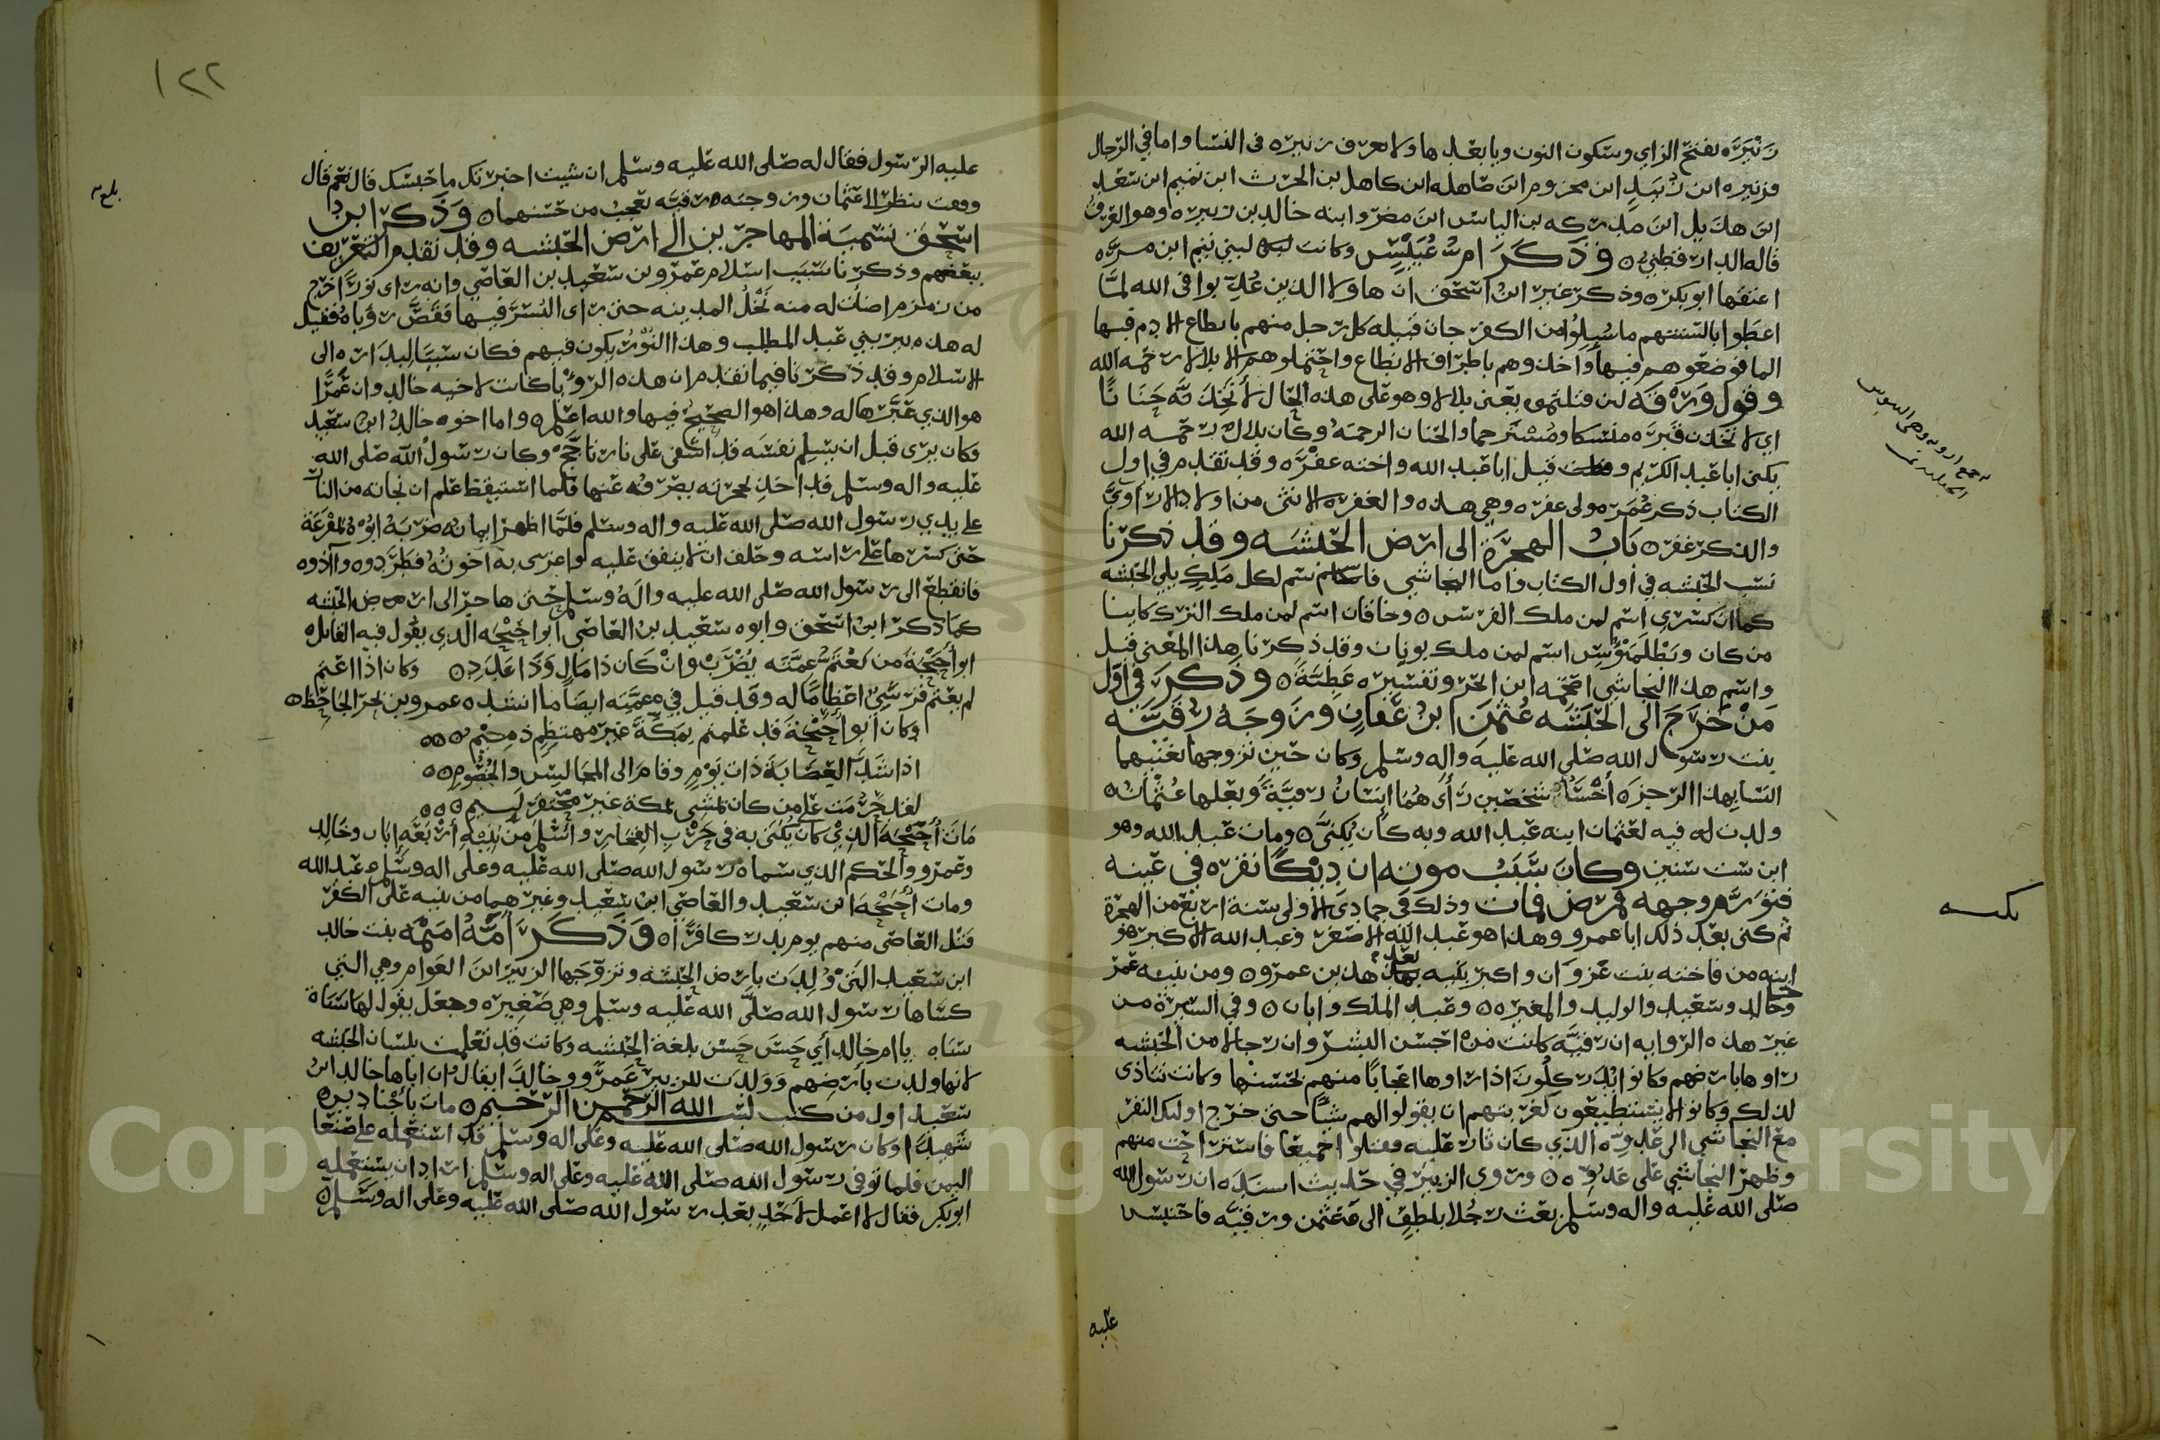 زنبره بفتح الزاي وسكون النون وبا بعدها ولا يعرف زنبره في النسا واما في الرجال
فزنبره ابن زبيد ابن مخزوم ابن صاهله ابن كاهل بن الحرث ابن تميم ابن سعد
ابن هذيل ابن مدركه بن الياس ابن مضر وابنه خالد بن زبيره وهو الغرق
قاله الدارقطني وذكر ام عبيس وكانت لبني تيم ابن مره
اعتقها ابو بكره وذكر غير ابن اسحق ان هاولا الذين عذبوا في الله لما
اعطوا بالسنتهم ما سيلوا من الكفر جات قبيله كل رجل منهم بانطاع الادم فيها
الما فوضعوهم فيها واخذوهم باطراف الانطاع واحتملوهم الا بلالا رحمه الله
وقول ورقه لين قتلتموه يعني بلالا وهو على هذه الحال لاتخذنه حنانا
اي لاتخذن قبره منسكا ومسترحما والحنان الرحمه وكان بلال رحمه الله
يكنى ابا عبد الكريم وقيل ابا عبد الله واخته عفره وقد تقدم في اول
الكتاب ذكر عمر مولى عفره وهي هذه والغفره الانثى من اولاد الاراوي
والذكر غفر باب الهجرة الى ارض الحبشه وقد ذكرنا
نسب الحبشه في اول الكتاب فاما النجاشي فاسم لكل ملك يلي الحبشه
كما ان كسرى اسم لمن ملك الفرس وخاقان اسم لمن ملك الترك كاينا
من كان وبطلميوس اسم لمن ملك يونان وقد ذكرنا هذا المعنى قبل
واسم هذا النجاشي اصحمه ابن ابحر وتفسيره عطية وذكر في اول
من خرج الى الحبشه عثمن ابن عفان وزوجه رقيه
بنت رسول الله صلى الله عليه واله وسلم وكان حين تزوجها يغنيهما
النسا بهذا الرجز احسن شخصين راى هما انسان رقية وبعلها عثمان
ولدت له فيه لعثمان ابنه عبد الله وبه كان يكنى ومات عبد الله وهو
ابن ست سنين وكان سبب موته ان ديكا نقره في عينه
فتورم وجهه فمرض فمات وذلك في جمادى الاولى سنة اربع من الهجرة
ثم كني بعد ذلك ابا عمرو وهذا هو عبد الله الاصغر وعبد الله الاكبر هو
ابنه من فاخته بنت غزوان واكبر بنيه بعد هذين عمرو ومن بنيه عمر
وخالد وسعيد والوليد والمغيره وعبد الملك وابان وفي السيرة من
غير هذه الروايه ان رقيه كانت من احسن البشر وان رجالا من الحبشه
راوها بارضهم وكانوا يدركلون اذا راوها اعجابا منهم بحسنها وكانت تتاذى
لذلك وكانوا لا يستطيعون لغربتهم ان يقولوا لهم شيا حتى خرج اوليك النفر
مع النجاشي الى عدوه الذي كان ثار عليه فقتلوا جميعا فاستراحت منهم
وظهر النجاشي على عدوه وروى الزبير في حديث اسنده ان رسول الله
صلى الله عليه واله وسلم بعث رجلا بلطف الى عثمن ورقيه فاحتبس
عليه
نكـتـه
١٢٢
بلغ
عليه الرسول فقال له صلى الله عليه وسلم ان شيت اخبرتك ما حبسك قال نعم قال
وقفت تنظر الى عثمان وزوجته رقيه تعجب من حسنهما وذكر ابن
اسحق تسمية المهاجرين الى ارض الحبشه وقد تقدم التعريف
ببعضهم وذكرنا سبب اسلام عمرو بن سعيد بن العاصي وانه راى نورا خرج
من زمزم اضات له منه نخل المدينه حتى راى البسر فيها فقص رؤياه فقيل
له هذه بير بني عبد المطلب وهذا النور يكون فيهم فكان سببا لبداره الى
الاسلام وقد ذكرنا فيما تقدم ان هذه الرويا كانت لاخيه خالد وان عمرا
هو الذي عبرها له وهذا هو الصحيح فيها والله اعلم واما اخوه خالد ابن سعيد
فكان يرى قبل ان يسلم نفسه قد اشفى على نار تاجج وكان رسول الله صلى الله
عليه واله وسلم قد اخذ بحجزته يصرفه عنها فلما استيقظ علم ان نجاته من النار
على يدي رسول الله صلى الله عليه واله وسلم فلما اظهر ايمانه ضربه ابوه بمقرعة
حتى كسرها على راسه وحلف ان لا ينفق عليه واغرى به اخوته فطردوه واذوه
فانقطع الى رسول الله صلى الله عليه واله وسلم حتى هاجر الى ارض الحبشه
كما ذكر ابن اسحق وابوه سعيد بن العاصي ابو احيحه الذي يقول فيه القايل
ابو احيحة من يعتم عمته يضرب وان كان ذا مال وذا عدد وكان اذا اعتم
لم يعتم قرشي اعظاما له وقد قيل في عمته ايضا ما انشده عمرو بن بحر الجاحظ
وكان ابو احيحة قد علمتم بمكة غير مهتضم ذميم
اذا شد العصابة ذات يوم وقام الى المجالس والخصوم
لقد حرمت على من كان يمشي بمكة غير محتقر ليم
مات احيحة الذي كان يكنى به في حرب الفجار واسلم من بنيه اربعه ابان وخالد
وعمرو والحكم الذي سماه رسول الله صلى الله عليه وعلى اله وسلم عبد الله
ومات احيحه ابن سعيد والعاصي ابن سعيد وغيرهما من بنيه على الكفر
قتل العاصي منهم يوم بدر كافرا وذكر امة امنه بنت خالد
ابن سعيد التي ولدت بارض الحبشه وتزوجها الزبير ابن العوام وهي التي
كساها رسول الله صلى الله عليه وسلم وهي صغيره وجعل يقول لها سناه
سناه يا ام خالد اي حسن حسن بلغة الحبشه وكانت قد تعلمت بلسان الحبشه
لانها ولدت بارضهم وولدت للزبير عمرو وخالدا يقال ان اباها خالد ابن
سعيد اول من كتب بسم الله الرحمن الرحيم مات باجنادين
شهيدا وكان رسول الله صلى الله عليه وعلى اله وسلم قد استعمله على صنعا
اليمن فلما توفى رسول الله صلى الله عليه وعلى اله وسلم اراد ان يستعمله
ابو بكر فقال لا اعمل لاحد بعد رسول الله صلى الله عليه وعلى اله وسلم